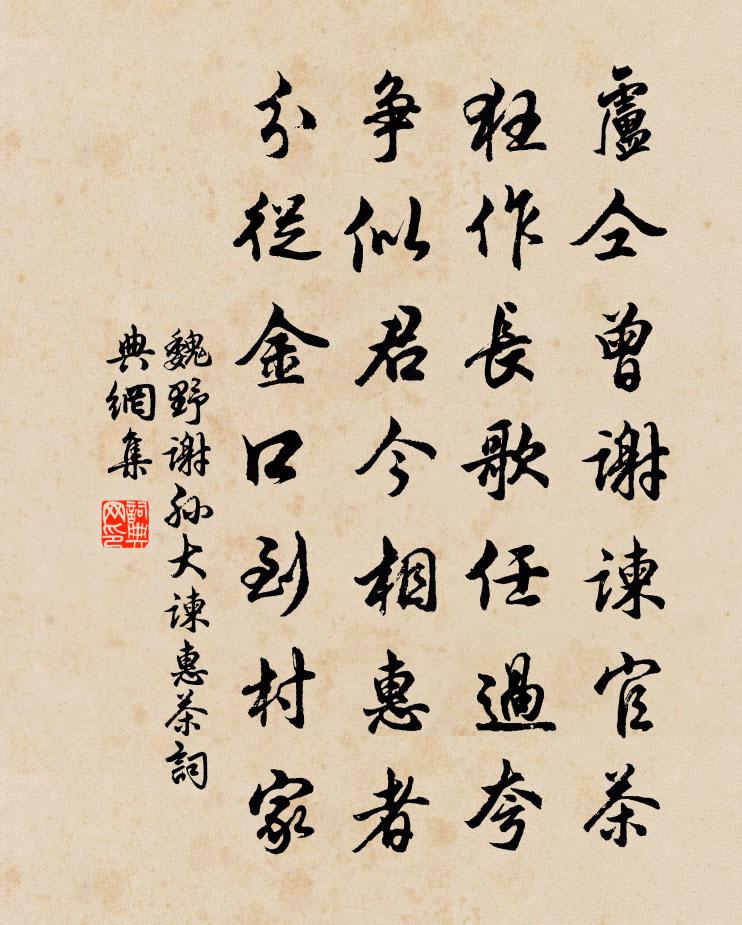 盧仝曾謝諫官茶
狂作長歌任過夸
争似君今相惠者
分從金口到村家
魏野谢孙大諫惠茶詞
典網集
詞典
网印